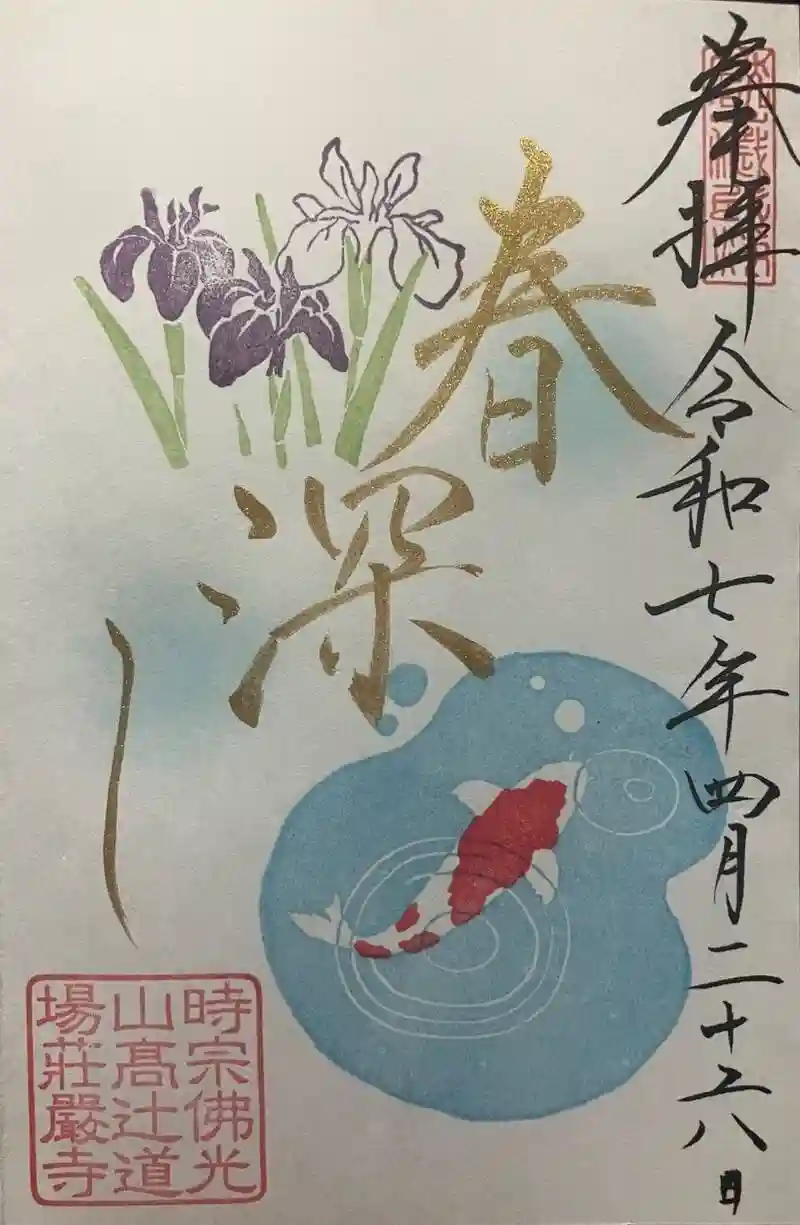 奉拝
令和七年四月二十六日
春
深
し
時宗佛光
山髙辻道
場莊嚴寺